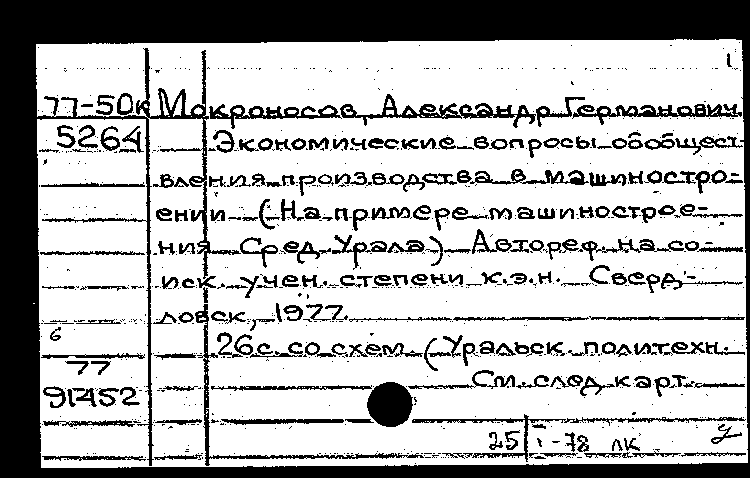 1
77-50к Мокроносов, Александр Германович.
5264 Экономические вопросы обобщест-
вления производства в машиностро-
ении (На примере машинострое-
ния Сред. Урала) Автореф. на со-
иск. учен. степени к.э.н. Сверд-
ловск, 1977.
6 26с. со схем. (Уральск. политехн.
77
См. след. карт.
91452
25 I-78 лк